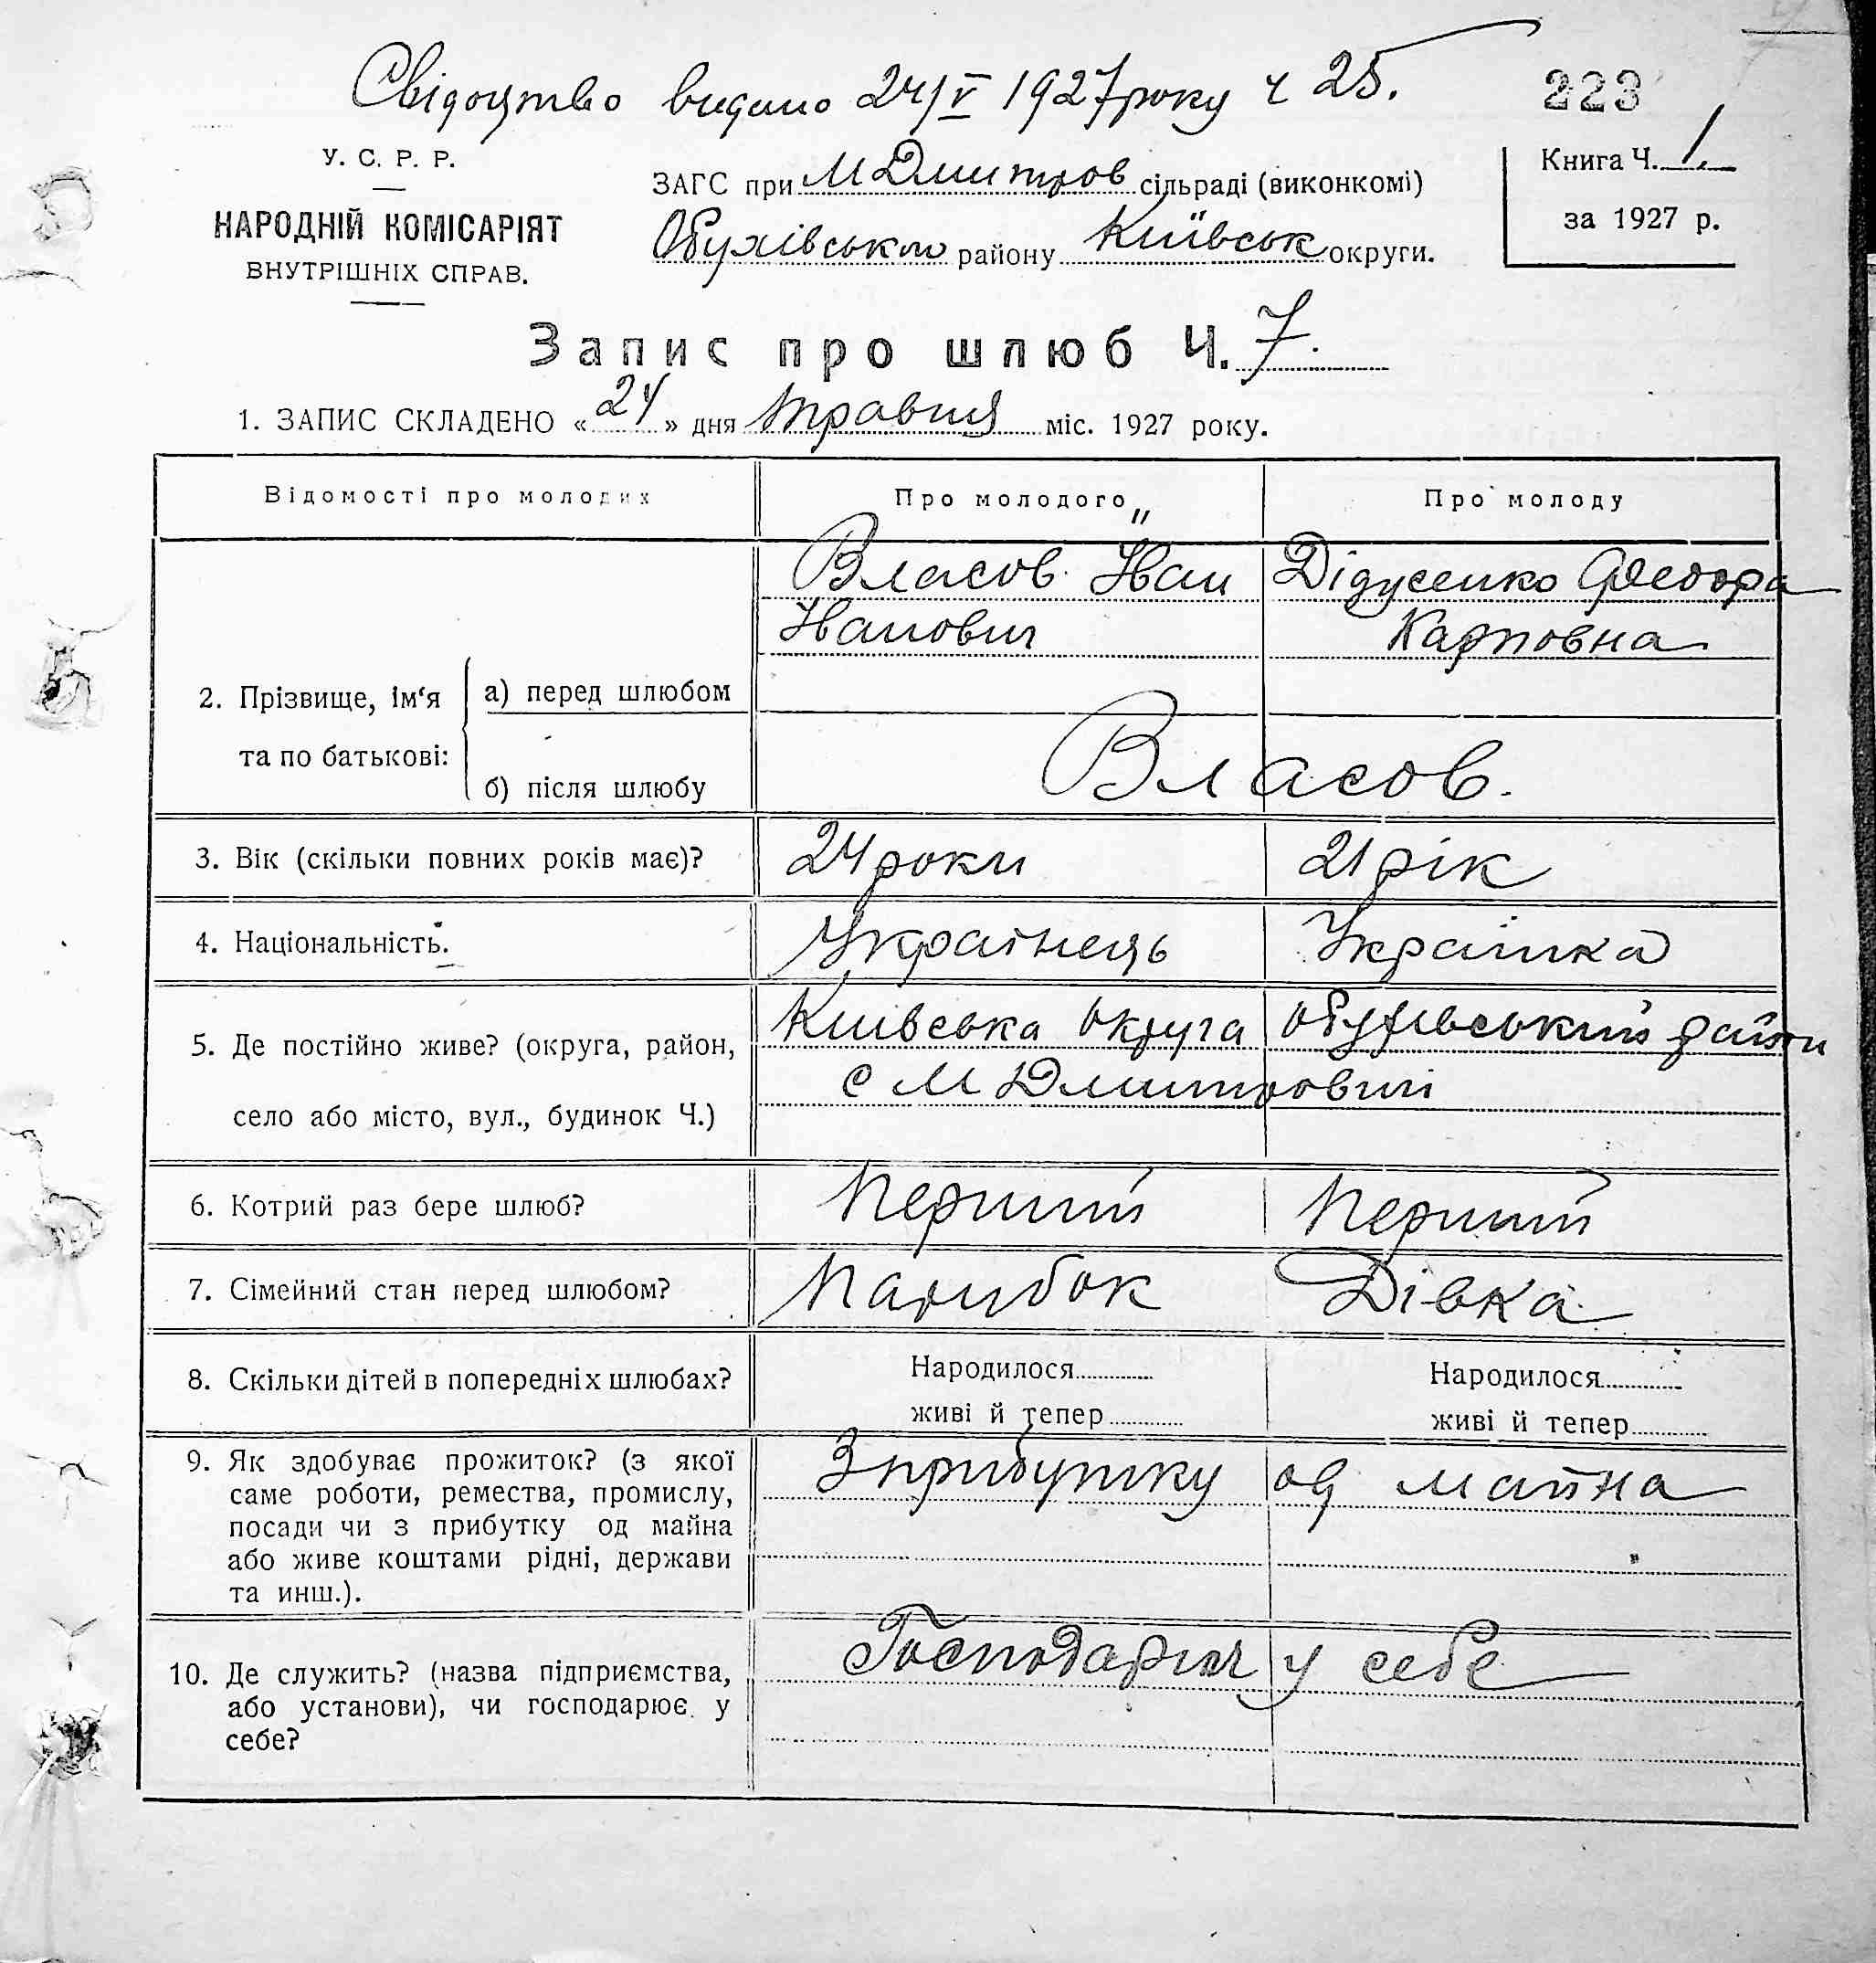 Свідоцтво видано 24/V 1927 року ч 25.
223
У. С. Р. Р.
НАРОДНІЙ КОМІСАРІЯТ
ВНУТРІШНІХ СПРАВ.
ЗАГС при МДмитров сільраді (виконкомі)
Обухівського району Київськ округи.
Книга Ч. 1.
за 1927 р.
Запис про шлюб Ч. 7.
1. ЗАПИС СКЛАДЕНО «24» дня травня міс. 1927 року.
Відомості про молодих
Про молодого
Про молоду
Власов Іван
Іванович
Дідусенко Федора
Карповна
2. Прізвище, ім‘я та по батькові:
а) перед шлюбом
б) після шлюбу
Власов.
3. Вік (скільки повних років має)?
24 роки
21 рік
4. Національність.
Українець
Українка
5. Де постійно живе? (округа, район,
село або місто, вул., будинок Ч.)
Київська округа Обухівський район
с М Дмитровичі
6. Котрий раз бере шлюб?
Перший
Перший
7. Сімейний стан перед шлюбом?
Парубок
Дівка
8. Скільки дітей в попередніх шлюбах?
Народилося
живі й тепер
Народилося
живі й тепер
9. Як здобуває прожиток? (з якої
саме роботи, ремества, промислу,
посади чи з прибутку од майна
або живе коштами рідні, держави
та инш.).
З прибутку од майна
10. Де служить? (назва підприємства,
або установи), чи господарює у
себе?
у себе